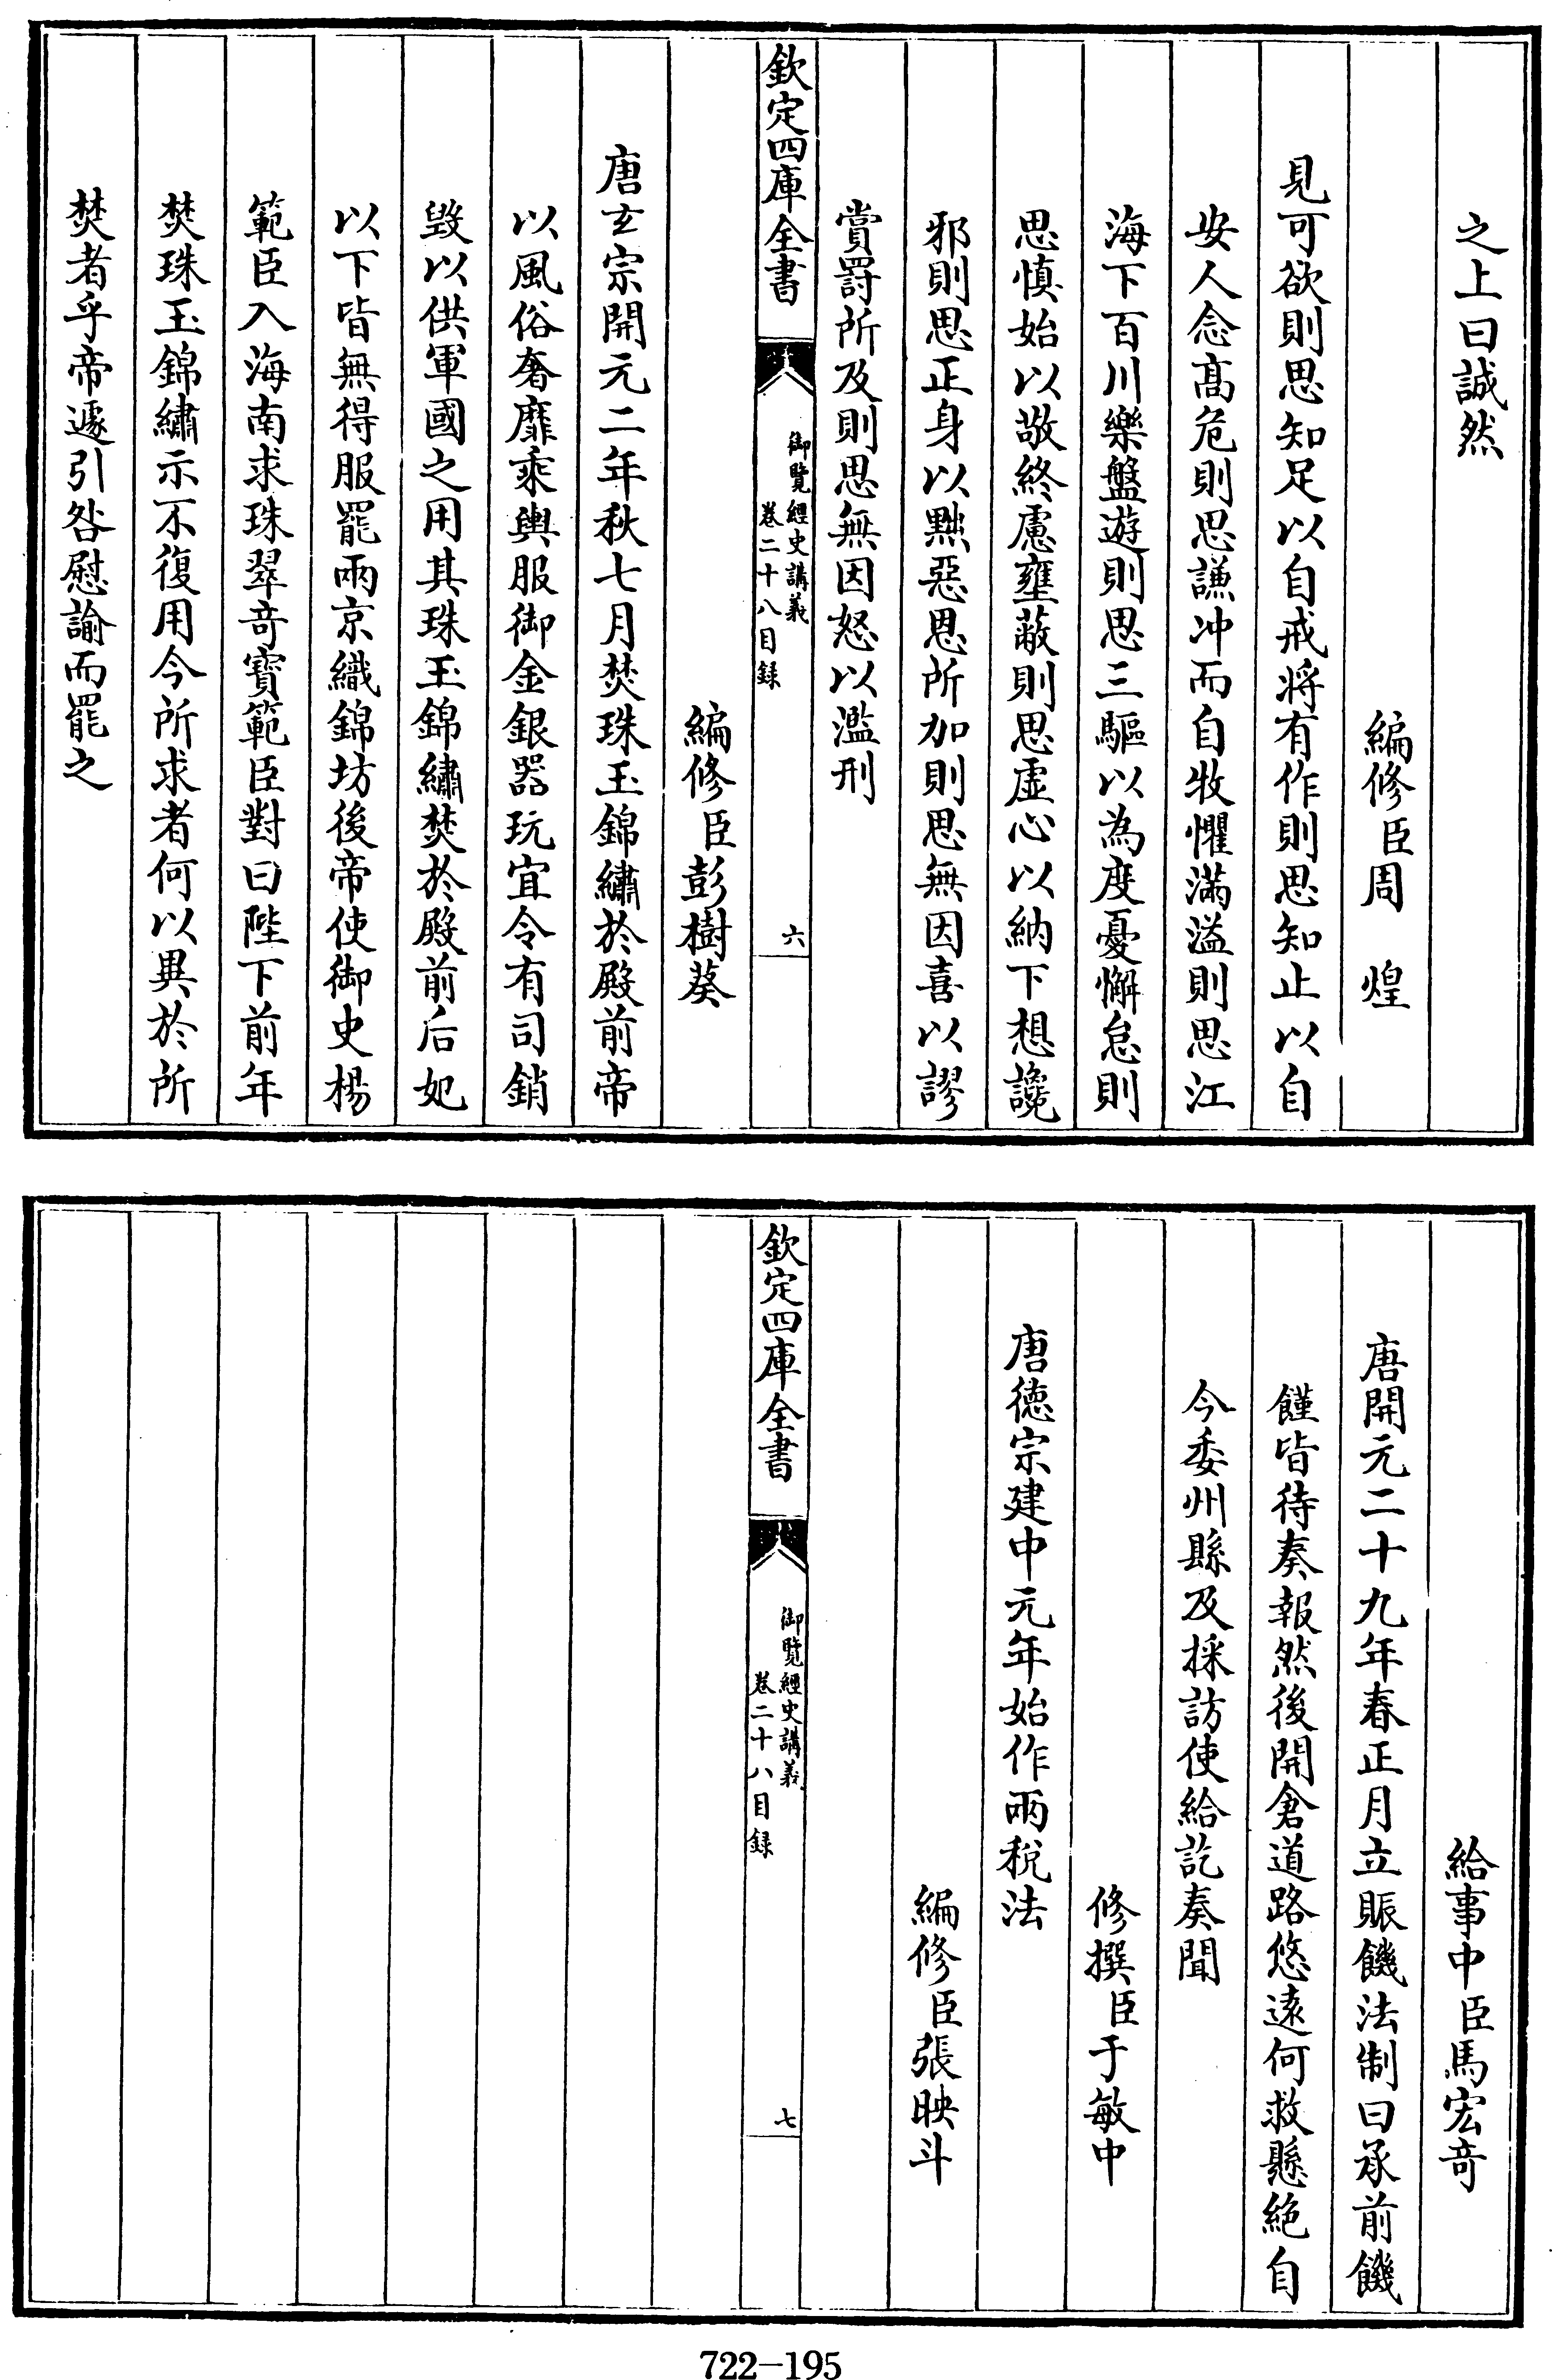 之上曰誠然
編修臣周　煌
見可欲則思知足以自戒將有作則思知止以自
安人念髙危則思謙冲而自牧懼滿溢則思江
海下百川樂盤遊則思三驅以為度憂懈怠則
思慎始以敬終慮壅蔽則思虛心以納下想讒
邪則思正身以黜惡恩所加則思無因喜以謬
賞罰所及則思無因怒以濫刑
欽定四庫全書
御覽經史講義
卷二十八目録
六
編修臣彭樹葵
唐玄宗開元二年秋七月焚珠玉錦繡於殿前帝
以風俗奢靡乘輿服御金銀器玩宜令有司銷
毀以供軍國之用其珠玉錦繡焚於殿前后妃
以下皆無得服罷兩京織錦坊後帝使御史楊
範臣入海南求珠翠竒寳範臣對曰陛下前年
焚珠玉錦繡示不復用今所求者何以異於所
焚者乎帝遽引咎慰諭而罷之
給事中臣馬宏竒
唐開元二十九年春正月立賑饑法制曰承前饑
饉皆待奏報然後開倉道路悠逺何救懸絶自
今委州縣及採訪使給訖奏聞
修撰臣于敏中
唐德宗建中元年始作兩稅法
編修臣張映斗
欽定四庫全書
御覽經史講義
卷二十八目録
七
722-195